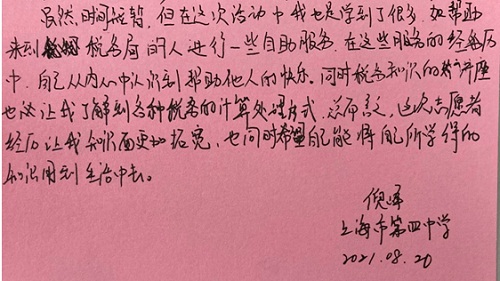 虽然,时间短暂,但在这次活动中我也是学到了很多,如帮助
来到税务局的人进行一些自助服务,在这些服务的经历
中,自己从内心中认识到帮助他人的快乐。同时税务知识的讲座
也让我了解到各种税务的计算处理方式,总而言之,这次志愿者
经历让我知识面更加拓宽,也同时希望自己能将自己所学得的
知识用到生活中去。
倪
上海市第四中学
2021.08.20